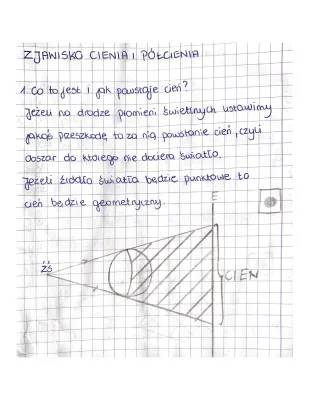 ZJAWISKO CIENIA I PÓŁCIENIA
1. Co to jest i jak powstaje cień?
Jeżeli na drodze promieni świetlnych ustawimy
jakąś przeszkodę to za nią powstanie cień, czyli
obszar do którego nie dociera światło.
Jeżeli źródło światła będzie punktowe to
cień będzie geometryczny.
E
źś
CIEŃ